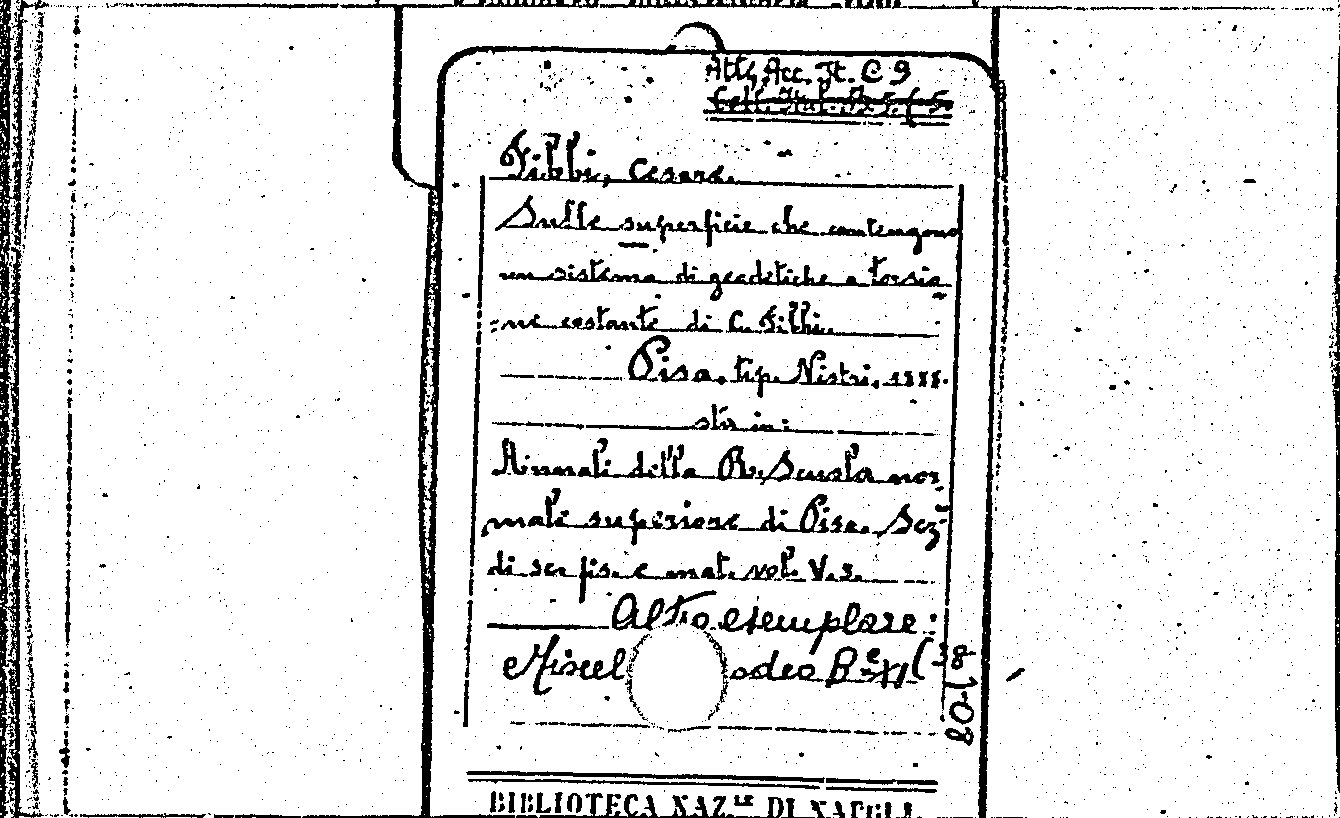 Atti Acc. It. C 9
Fibbi, Cesare.
Sulle superficie che contengono
un sistema di geodetiche a torsio
=ne costante di C. Fibbi.
Pisa. tip. Nistri. 1888.
sta in:
Annali della R. Scuola nor
male superiore di Pisa. Sez.
di sc. fis. e mat. vol. V. 3.
Altro esemplare:
Miscel odeo B
BIBLIOTECA NAZ.LE DI NAPOLI.